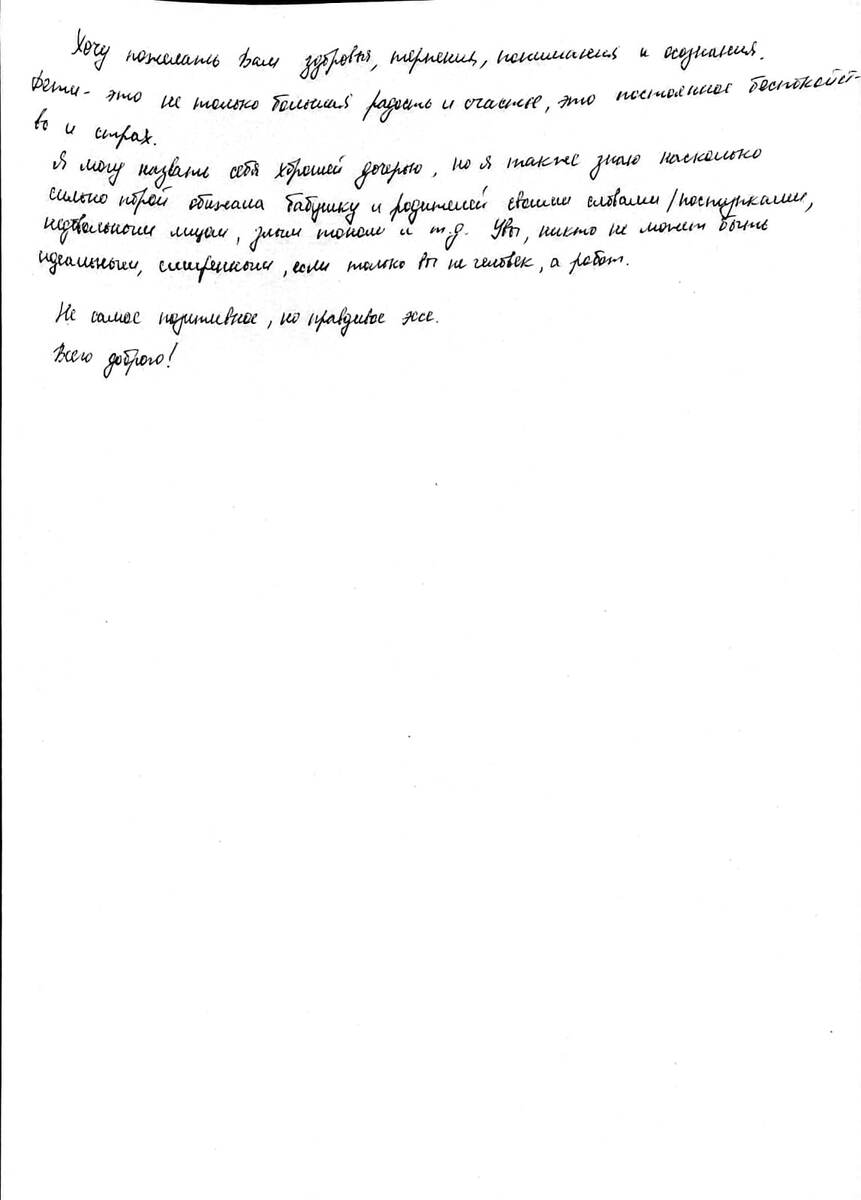 Хочу пожелать Вам здоровья, терпения, понимания и осознания.
Дети - это не только большая радость и счастье, это постоянное беспокойст-
во и страх.
Я могу назвать себя хорошей дочерью, но я также знаю насколько
сильно порой обижала бабушку и родителей своими словами/поступками,
недовольным лицом, злым тоном и т.д. Увы, никто не может быть
идеальным, смиренным, если только Вы не человек, а робот.
Не самое позитивное, но правдивое эссе.
Всего доброго!